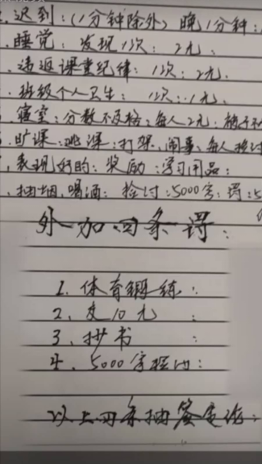 迟到:(1分钟除外) 晚1分钟:
睡觉:发现1次:2元.
违返课堂纪律:1次:2元.
班级个人卫生:1次:1元.
寝室:分数不及格:每人2元:
旷课:逃课:打架.闹事:每人检讨
表现好的:奖励:学习用品:
抽烟.喝酒:检讨:5000字.罚:5
外加四条罚:
1、体育锻练:
2、交10元:
3、抄书:
4、5000字检讨:
以上四条抽签定论: